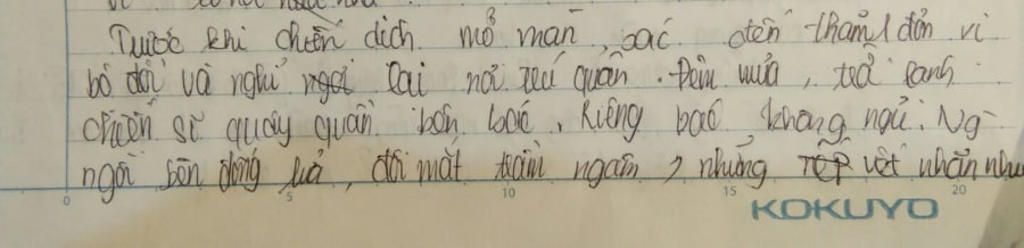 Trước khi chiến dịch mở màn, Bác đến thăm 1 đơn vị
bộ đội và nghỉ ngơi lại nơi trú quân. Đêm mưa, trời lạnh
chiến sĩ quây quần bên Bác, Riêng bác không ngủ. Ng
ngồi bên đống lửa, đôi mắt trầm ngâm, những vết nhăn như
0 5 10 15 20
KOKUYO